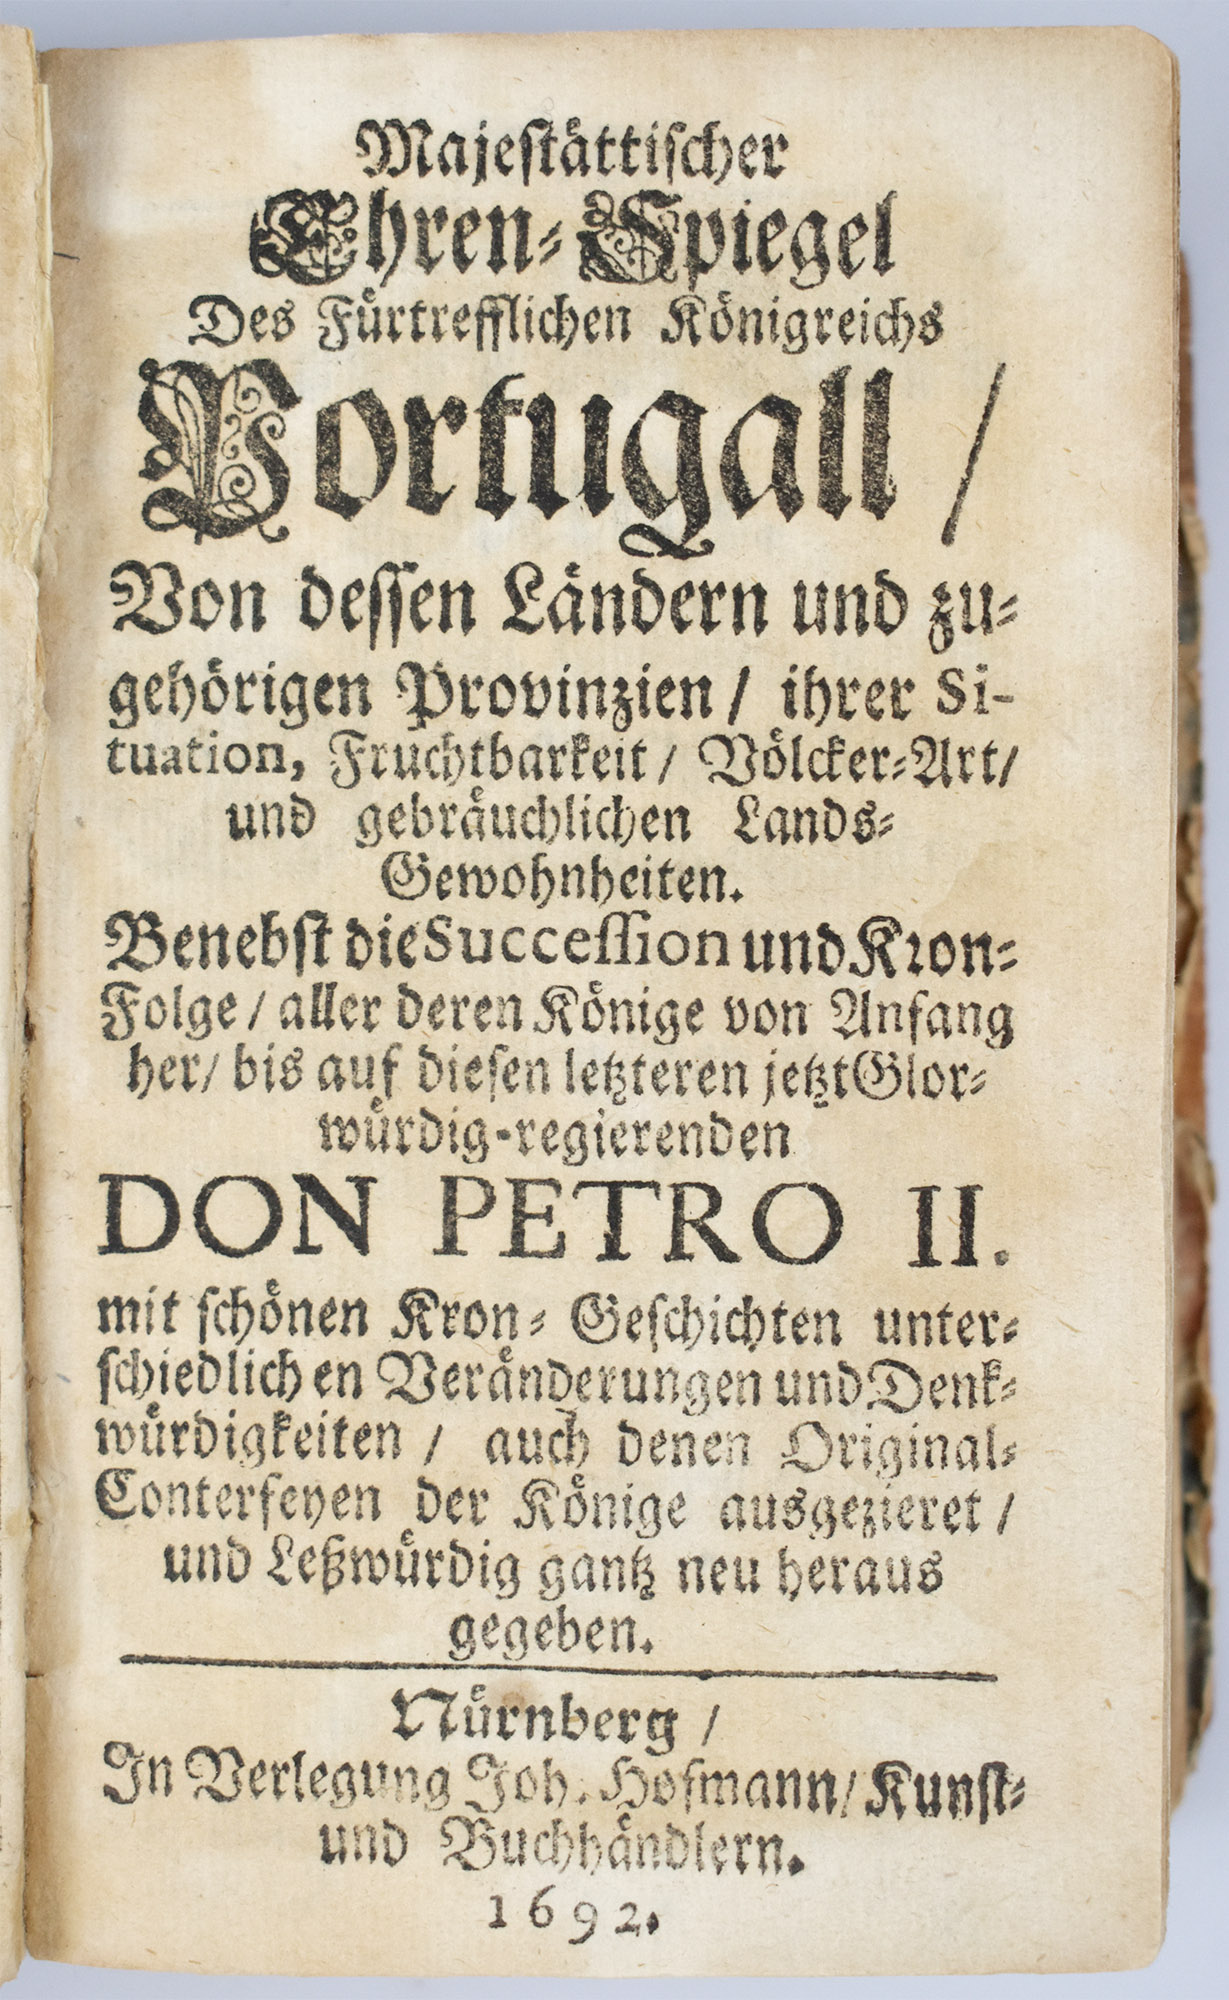 Majestättischer
Ehren-Spiegel
Des Fürtrefflichen Königreichs
Portugall /
Von dessen Ländern und zu-
gehörigen Provinzien / ihrer Si-
tuation, Fruchtbarkeit / Völcker-Art /
und gebräuchlichen Lands-
Gewohnheiten.
Benebst die Succession und Kron-
Folge / aller deren Könige von Anfang
her / bis auf diesen letzteren jetzt Glor-
würdig-regierenden
DON PETRO II.
mit schönen Kron-Geschichten unter-
schiedlichen Veränderungen und Denk-
würdigkeiten / auch denen Original-
Conterfeyen der Könige ausgezieret /
und Leßwürdig gantz neu heraus
gegeben.
Nürnberg /
In Verlegung Joh. Hofmann / Kunst-
und Buchhändlern.
1692.